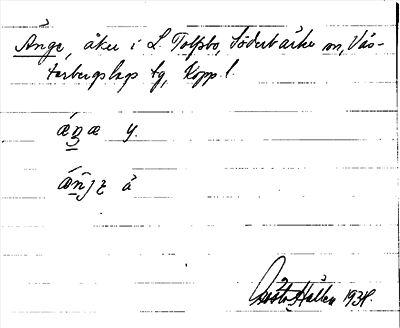 Ånge, åker i L. Tolfsbo, Söderbärke sn, Väs-
terbergslags tg, Kopp. l.
y.
å
Gösta Hallén 1934.